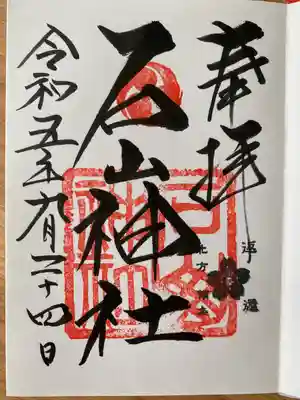 奉拝
石山神社
令和五年九月二十四日